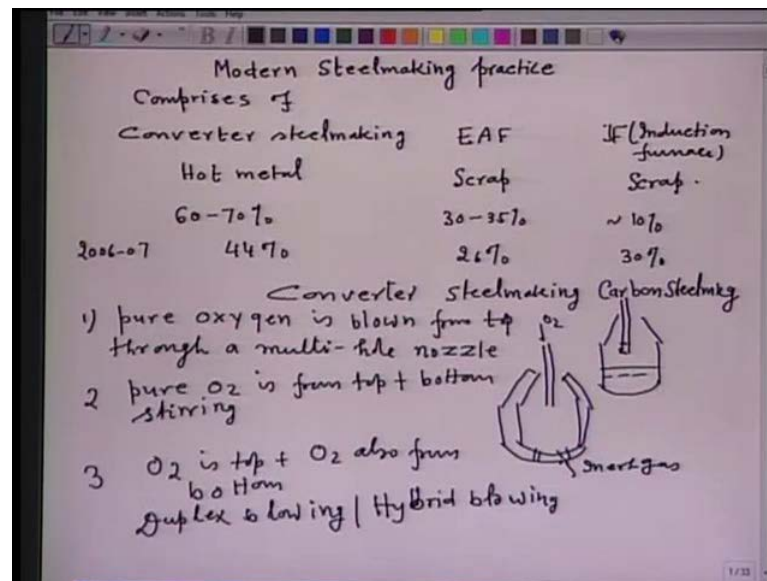 Modern Steelmaking practice
Comprises of
Converter steelmaking EAF IF (Induction furnace)
Hot metal Scrap Scrap.
60-70% 30-35% ~ 10%
2006-07 44% 26% 30%
Converter steelmaking Carbon Steelmkg
1) pure oxygen is blown from top O2
through a multi-hole nozzle
2 pure O2 is from top + bottom
stirring
3 O2 is top + O2 also from
bottom
Inert gas
Duplex blowing | Hybrid blowing
1/33